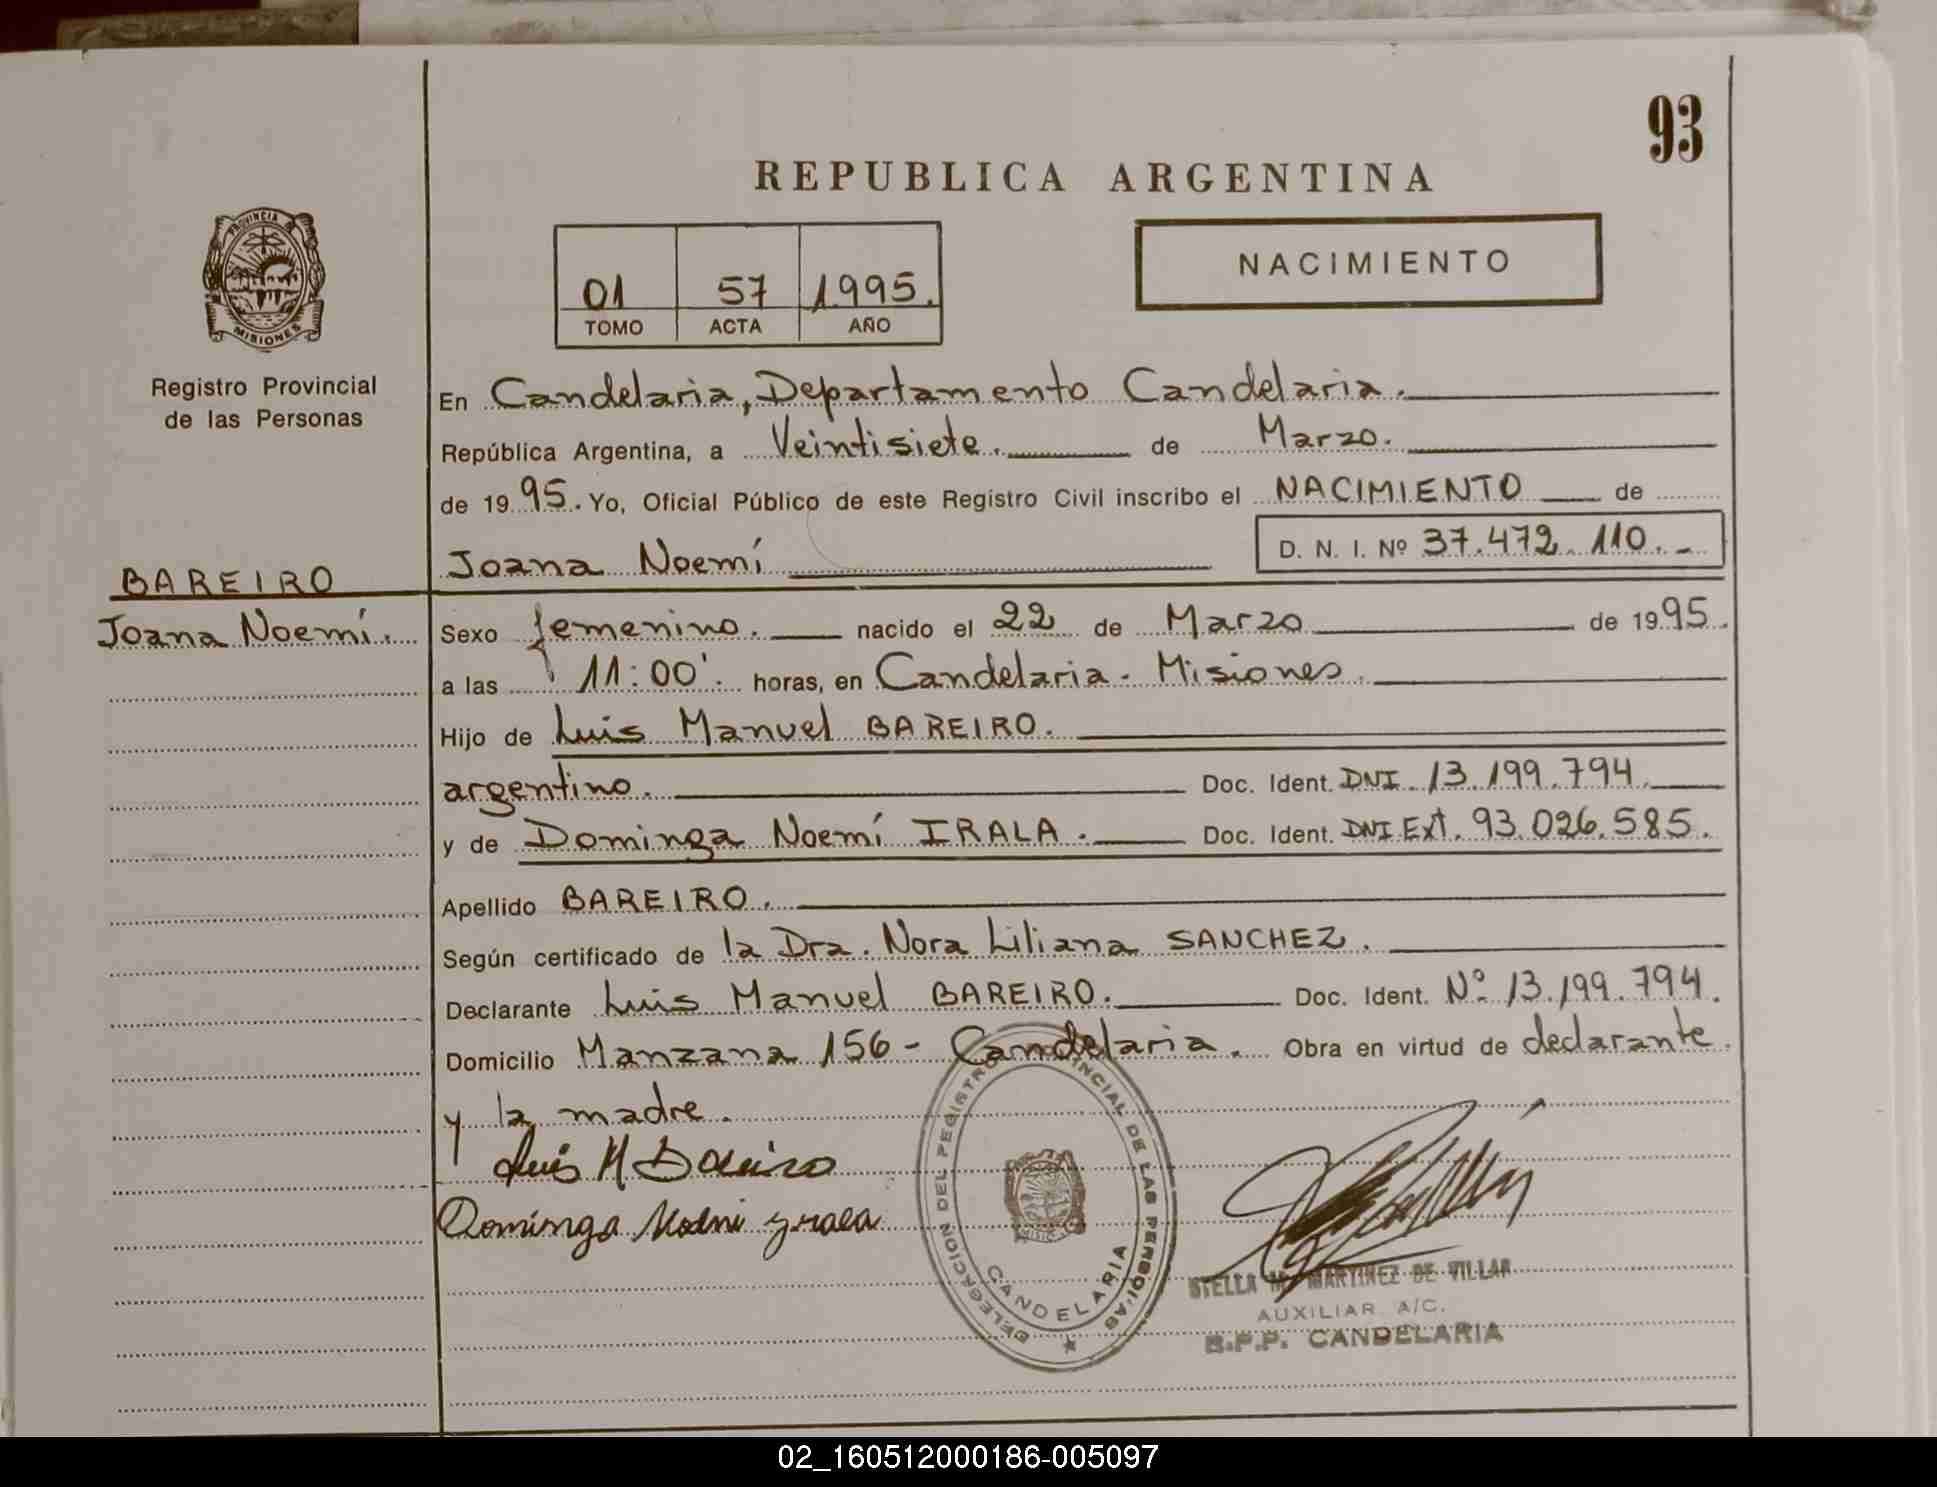 93
REPUBLICA ARGENTINA
PROVINCIA
MISIONES
01 57 1995.
TOMO ACTA AÑO
NACIMIENTO
Registro Provincial
de las Personas
En Candelaria, Departamento Candelaria.
República Argentina, a Veintisiete. de Marzo.
de 1995. Yo, Oficial Público de este Registro Civil inscribo el NACIMIENTO de
Joana Noemí D. N. I. Nº 37.472.110.-
BAREIRO
Joana Noemí.
Sexo femenino. nacido el 22 de Marzo de 1995.
a las 11:00'. horas, en Candelaria - Misiones.
Hijo de Luis Manuel BAREIRO.
argentino. Doc. Ident. DNI. 13.199.794.
y de Dominga Noemí IRALA. Doc. Ident. DNI.Ext. 93.026.585.
Apellido BAREIRO.
Según certificado de la Dra. Nora Liliana SANCHEZ.
Declarante Luis Manuel BAREIRO. Doc. Ident. Nº 13.199.794.
Domicilio Manzana 156 - Candelaria. Obra en virtud de declarante
y la madre.
Luis M Bareiro
Dominga Noemi Yrala
DELEGACION DEL REGISTRO PROVINCIAL DE LAS PERSONAS
CANDELARIA
STELLA M. MARTINEZ DE VILLAR
AUXILIAR A/C.
R.P.P. CANDELARIA
02_160512000186-005097